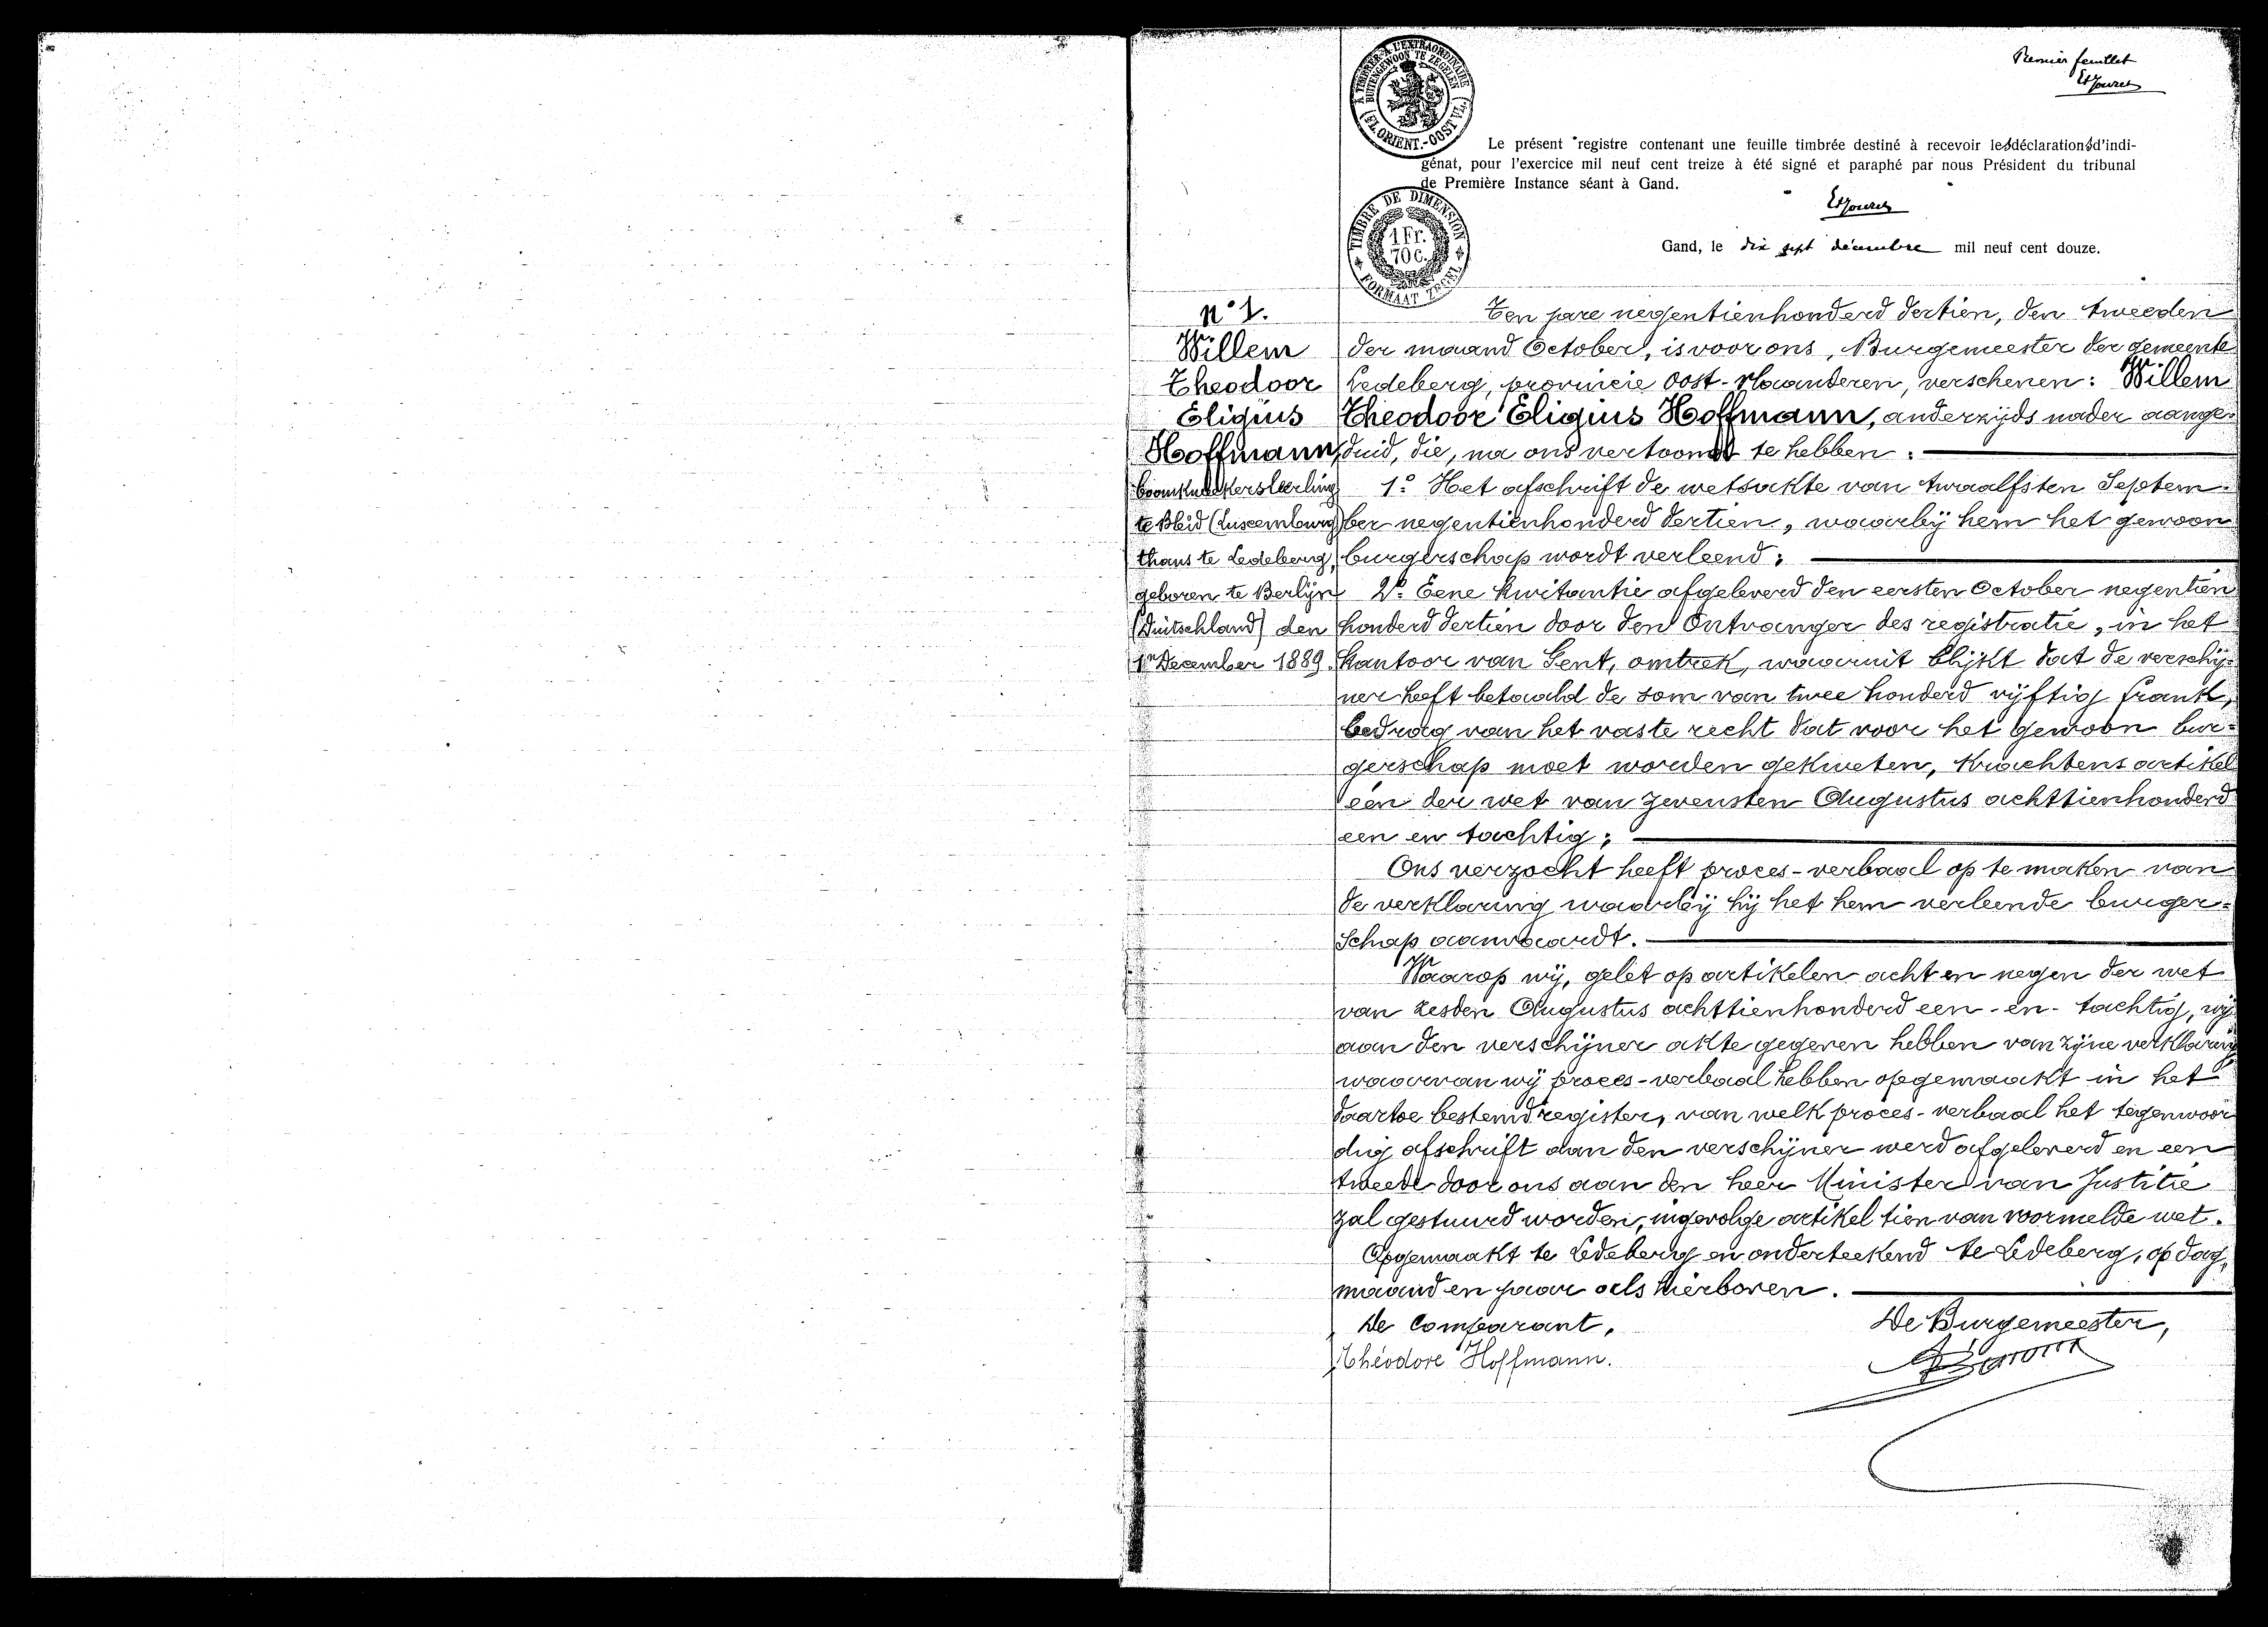 Premier feuillet
A TIMBRER A L'EXTRAORDINAIRE
BUITENGEWOON TE ZEGELEN
(FL. ORIENT.-OOST VL.)
Le présent registre contenant une feuille timbrée destiné à recevoir les déclarations d'indi-
génat, pour l'exercice mil neuf cent treize à été signé et paraphé par nous Président du tribunal
de Première Instance séant à Gand.
TIMBRE DE DIMENSION
1 Fr.
70 C.
FORMAAT ZEGEL
Gand, le dix sept décembre mil neuf cent douze.
N° 1.
Willem
Theodoor
Eligius
Hoffmann,
boomkweekersleerling
te Bleid (Luxemburg)
thans te Ledeberg,
geboren te Berlijn
(Duitschland) den
1n December 1889.
Ten jare negentienhonderd dertien, den tweeden
der maand October, is voor ons, Burgemeester der gemeente
Ledeberg, provincie Oost-Vlaanderen, verschenen: Willem
Theodoor Eligius Hoffmann, anderzijds nader aange-
duid, die, na ons vertoond te hebben:
1° Het afschrift de wetsakte van twaalfsten Septem-
ber negentienhonderd dertien, waarbij hem het gewoon
burgerschap wordt verleend;
2° Eene kwitantie afgeleverd den eersten October negentien
honderd dertien door den Ontvanger des registratie, in het
kantoor van Gent, omtrek, waaruit blijkt dat de verschij-
ner heeft betaald de som van twee honderd vijftig frank,
bedrag van het vaste recht dat voor het gewoon bur-
gerschap moet worden gekweten, krachtens artikel
één der wet van zevensten Augustus achttienhonderd
een en tachtig;
Ons verzocht heeft proces-verbaal op te maken van
de verklaring waarbij hij het hem verleende burger-
schap aanvaardt.
Waarop wij, gelet op artikelen acht en negen der wet
van zesden Augustus achttienhonderd een-en-tachtig, wij
aan den verschijner akte gegeven hebben van zijne verklaring
waarvan wij proces-verbaal hebben opgemaakt in het
daartoe bestemd register, van welk proces-verbaal het tegenwoor
dig afschrift aan den verschijner werd afgeleverd en een
tweede door ons aan den heer Minister van Justitie
zal gestuurd worden, ingevolge artikel tien van voormelde wet.
Opgemaakt te Ledeberg en onderteekend te Ledeberg, op dag,
maand en jaar als hierboven.
De Comparant,
De Burgemeester,
Théodore Hoffmann.